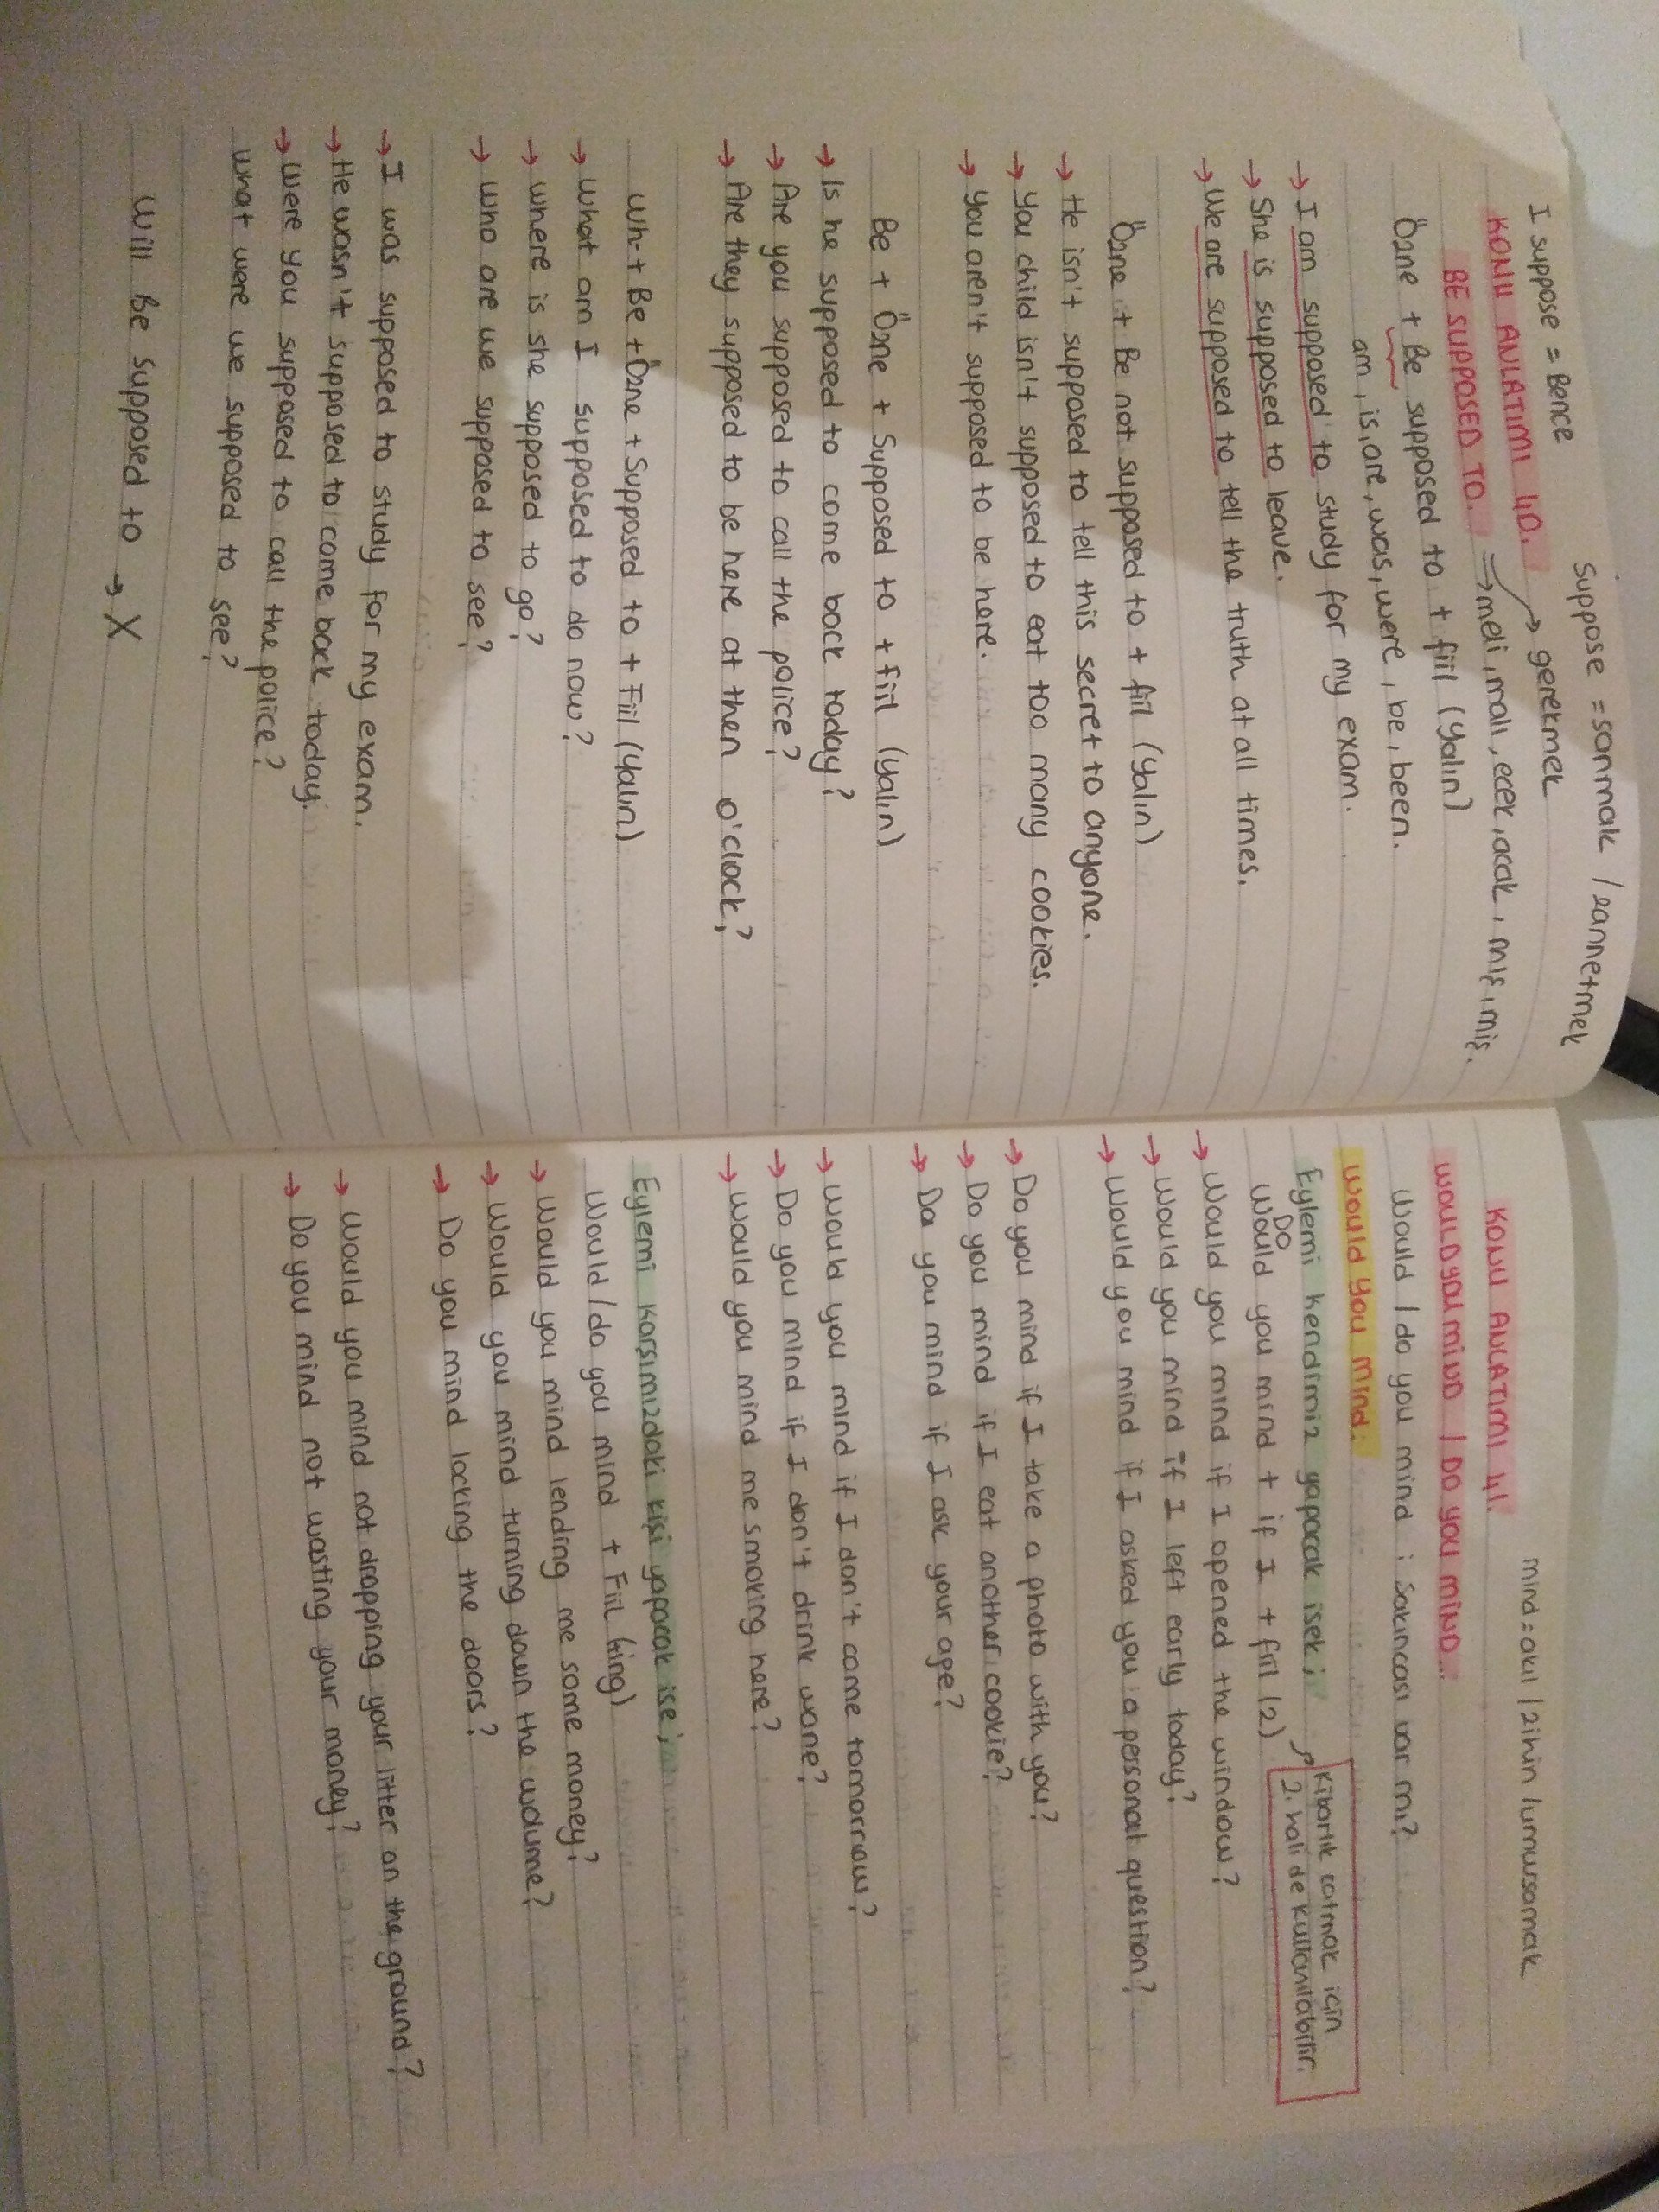 Suppose = sanmak / zannetmek
I suppose = Bence
KONU ANLATIMI 40. → gerekmek
BE SUPPOSED TO. ⇒ meli, malı, ecek, acak, mış, miş.
Özne + Be supposed to + fiil (Yalın)
am, is, are, was, were, be, been.
→ I am supposed to study for my exam.
→ She is supposed to leave.
→ We are supposed to tell the truth at all times.
Özne + Be not supposed to + fiil (Yalın)
→ He isn't supposed to tell this secret to anyone.
→ You child isn't supposed to eat too many cookies.
→ You aren't supposed to be here.
Be + Özne + Supposed to + fiil (yalın)
→ Is he supposed to come back today?
→ Are you supposed to call the police?
→ Are they supposed to be here at then o'clock?
Wh- + Be + Özne + Supposed to + Fiil (Yalın)
→ What am I supposed to do now?
→ Where is she supposed to go?
→ Who are we supposed to see?
→ I was supposed to study for my exam.
→ He wasn't supposed to come back today.
→ Were you supposed to call the police?
What were we supposed to see?
Will be supposed to → X
mind = akıl / zihin / umursamak
KONU ANLATIMI 41.
WOULD YOU MIND / DO YOU MIND...
Would / do you mind : Sakıncası var mı?
Would you mind:
Eylemi kendimiz yapacak isek;
Kibarlık katmak için
2. hali de kullanılabilir.
Do
Would you mind + if I + fiil (2)
→ Would you mind if I opened the window?
→ Would you mind if I left early today?
→ Would you mind if I asked you a personal question?
→ Do you mind if I take a photo with you?
→ Do you mind if I eat another cookie?
→ Do you mind if I ask your age?
→ Would you mind if I don't come tomorrow?
→ Do you mind if I don't drink wane?
→ Would you mind me smoking here?
Eylemi karşımızdaki kişi yapacak ise;
Would / do you mind + Fiil (ing)
→ Would you mind lending me some money?
→ Would you mind turning down the wolume?
→ Do you mind locking the doors?
→ Would you mind not dropping your litter on the ground?
→ Do you mind not wasting your money?